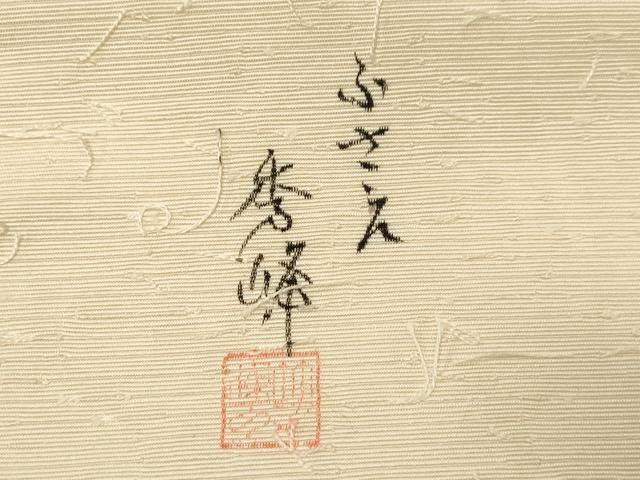 ふさえ
秀峰